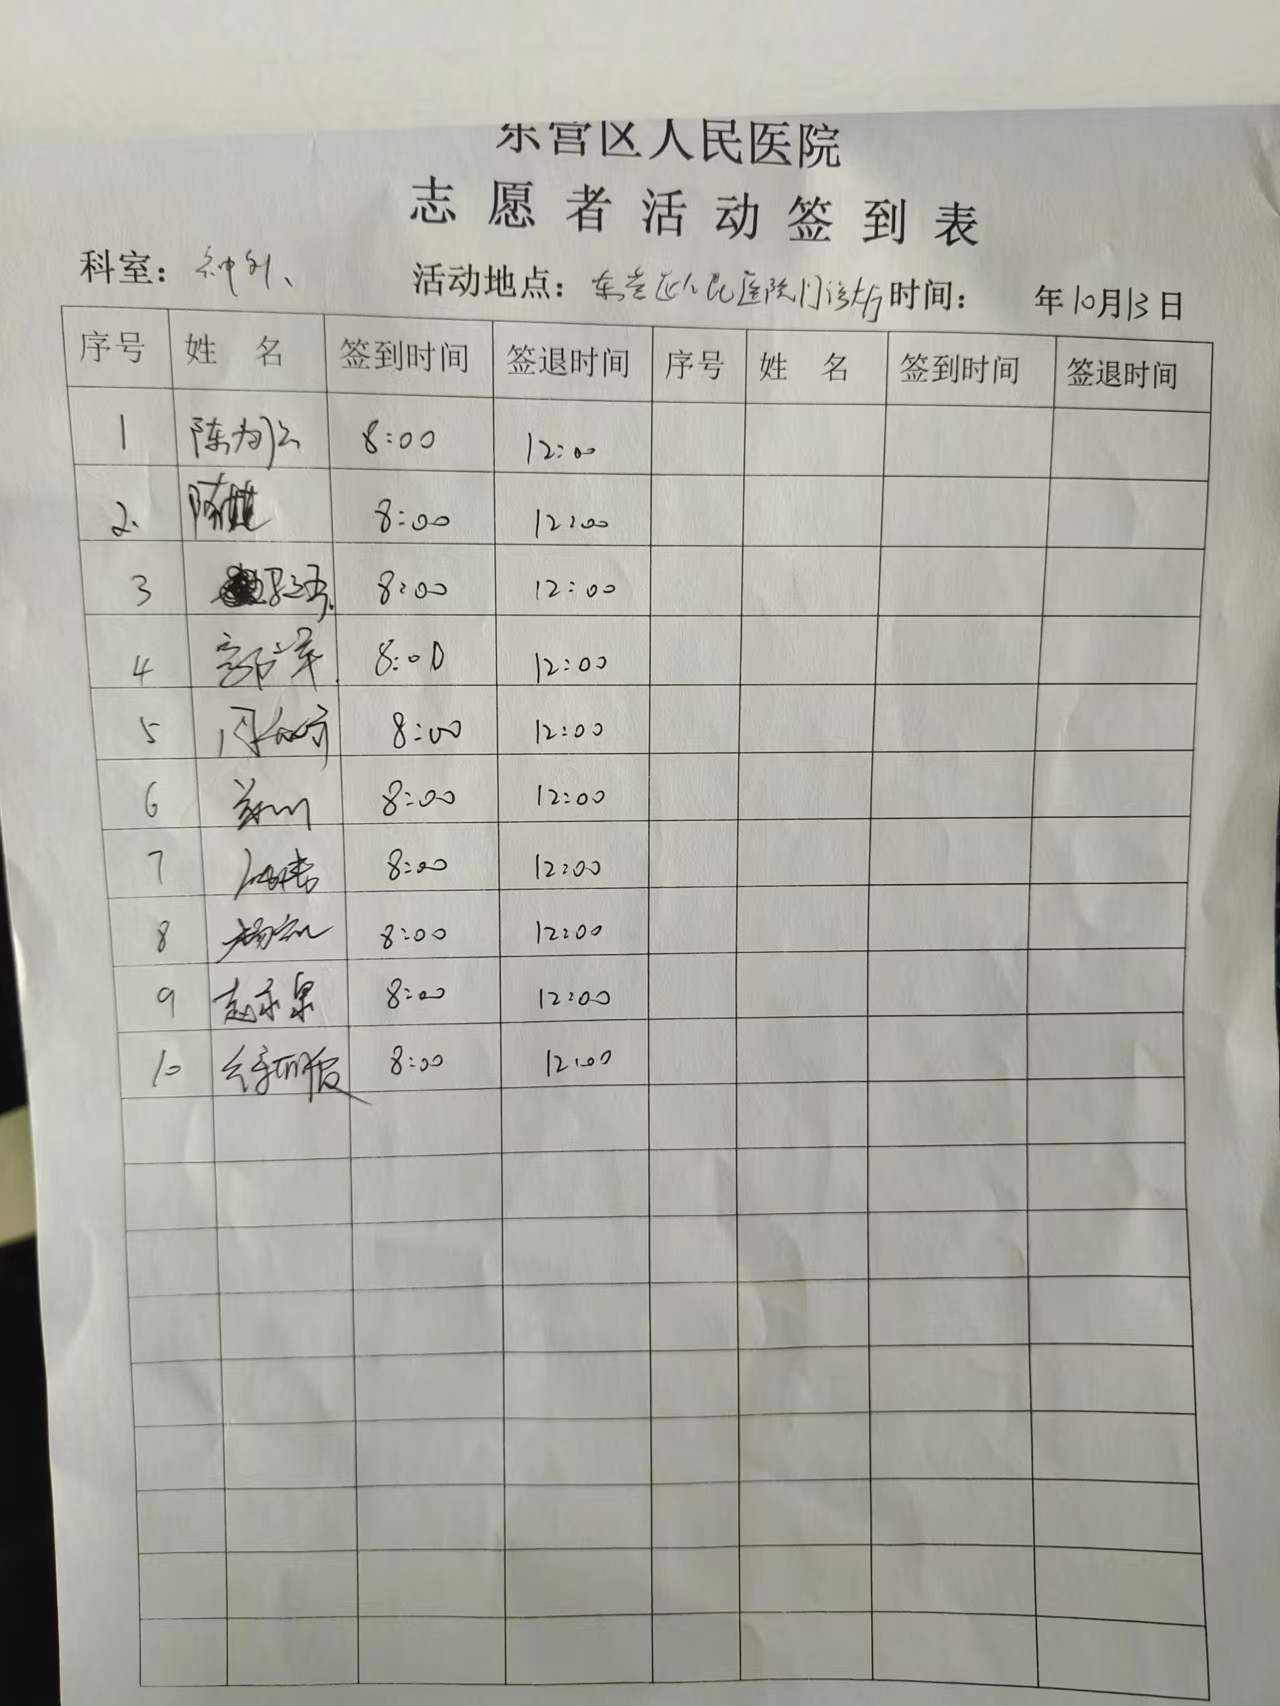 东营区人民医院
志愿者活动签到表
科室：神外、 活动地点：东营区人民医院门诊大厅 时间： 年10月13日
序号 姓名 签到时间 签退时间 序号 姓名 签到时间 签退时间
1 8:00 12:00
2. 8:00 12:00
3 8:00 12:00
4 8:00 12:00
5 8:00 12:00
6 8:00 12:00
7 8:00 12:00
8 8:00 12:00
9 赵永泉 8:00 12:00
10 8:00 12:00